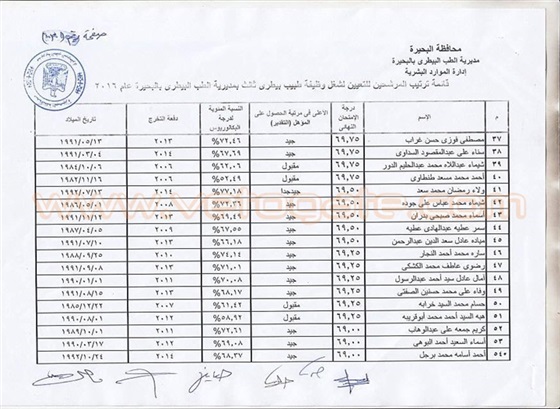 محافظة البحيرة
مديرية الطب البيطرى بالبحيرة
إدارة الموارد البشرية
قائمة ترتيب المرشحين للتعيين لشغل وظيفة طبيب بيطرى ثالث بمديرية الطب البيطرى بالبحيرة عام ٢٠١٦
م الإسم درجة الإمتحان النهائى الأعلى فى مرتبة الحصول على المؤهل (التقدير) النسبة المئوية لدرجة البكالوريوس دفعة التخرج تاريخ الميلاد
٣٧ مصطفي فوزى حسن غراب ٦٩,٧٥ جيد ٧٢,٤٦% ٢٠١٣ ١٩٩١/٠٥/١٣
٣٨ سناء على عبدالمقصود السداوى ٦٩,٧٥ جيد ٦٧,٦٩% ٢٠١٤ ١٩٩١/٠٣/٠٤
٣٩ شيماء عبداللاه محمد عبدالحليم الدور ٦٩,٧٥ مقبول ٦٢,٠٦% ٢٠٠٦ ١٩٨٤/١٠/٠٦
٤٠ أحمد محمد مسعد طنطاوى ٦٩,٧٥ مقبول
٤١ ولاء رمضان محمد سعد ٦٩,٥٠ جيدجدا ٢٠١٣
٤٢ شيماء محمد عباس على جوده ٦٩,٥٠ جيد ٧٢,٣٦% ٢٠٠٨
٤٣ أسماء محمد صبحى بدران ٦٩,٥٠ جيد
٤٤ سمر عطيه عبدالهادى عطيه ٦٩,٥٠ جيد ٦٧,٥٥% ٢٠٠٩ ١٩٨٧/٠٤/٠٥
٤٥ مياده عادل سعد الدين عبدالرحمن ٦٩,٥٠ جيد ٦٦,١٨% ٢٠١٤ ١٩٩١/٠٧/١٠
٤٦ ساره محمد أحمد النجار ٦٩,٢٥ جيد ٧٤,١٠% ٢٠١٠ ١٩٨٨/٠٩/٢٥
٤٧ رضوى عاطف محمد الكشكى ٦٩,٢٥ جيد ٧١,٠١% ٢٠١٣ ١٩٩١/٠٩/٠٨
٤٨ أمال عادل سيد أحمد عبدالرسول ٦٩,٢٥ جيد ٧٠,٠٨% ٢٠١٣
٤٩ وفاء على محمد حسنين الصفتى ٦٩,٢٥ جيد ٦٨,١٧% ٢٠١٣ ١٩٩١/٠٨/١٥
٥٠ حسام محمد السيد خرابه ٦٩,٢٥ مقبول ٦١,٤٢% ٢٠٠٧ ١٩٨٥/١٢/٢٢
٥١ هبه السيد أحمد محمد أبوقريبه ٦٩,٢٥ مقبول ٥٨,٩٢% ٢٠١٢
٥٢ كريم جمعه على عبدالوهاب ٦٩,٠٠ جيد ٧٢,٦١% ٢٠١١ ١٩٨٩/١٠/٠١
٥٣ أسماء السعيد أحمد البوهى ٦٩,٠٠ جيد ٦٩,٠٨% ٢٠١٢ ١٩٩٠/٠٣/١٧
٥٤ أحمد أسامه محمد برجل ٦٩,٠٠ جيد ٦٨,٣٧% ٢٠١٤ ١٩٩٢/١٠/٢٤